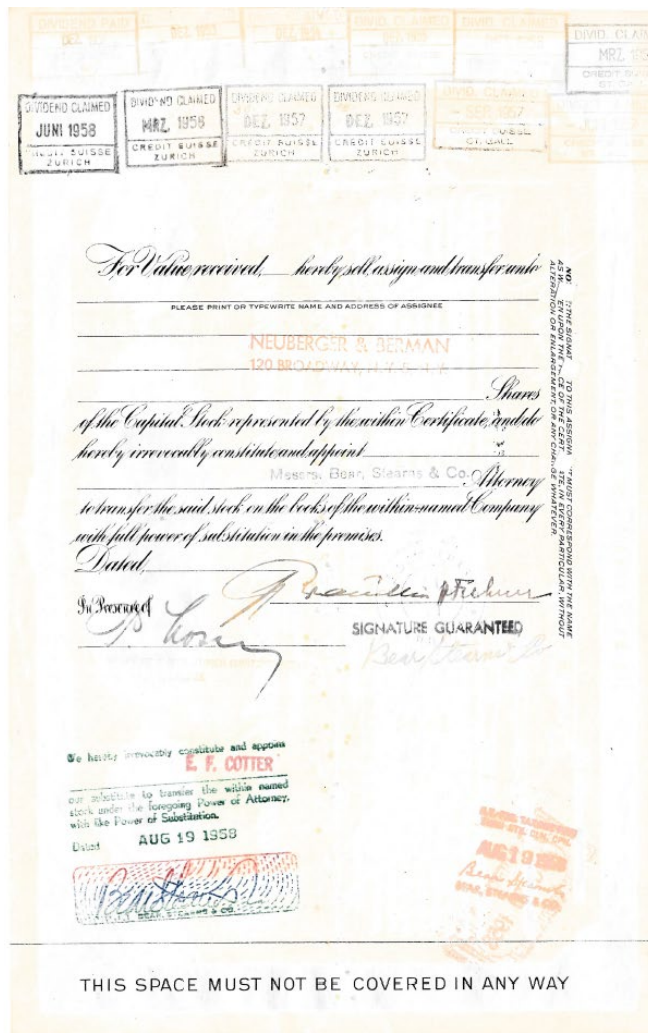 DIVIDEND PAID
DEZ
DEZ. 1959
DEZ. 1959
DIVID. CLAIMED
DIVID. CLAIMED
DIVID. CLAI
MRZ 195
CREDIT SUISSE
ST. GALL
DIVIDEND CLAIMED
JUNI 1958
CREDIT SUISSE
ZURICH
DIVIDEND CLAIMED
MRZ. 1958
CREDIT SUISSE
ZURICH
DIVIDEND CLAIMED
DEZ 1957
CREDIT SUISSE
ZURICH
DIVIDEND CLAIMED
DEZ. 1957
CREDIT SUISSE
ZURICH
DIVIDEND CLAIMED
1957
CREDIT SUISSE
ST. GALL
For Value received, hereby sell, assign and transfer unto
PLEASE PRINT OR TYPEWRITE NAME AND ADDRESS OF ASSIGNEE
NEUBERGER & BERMAN
120 BROADWAY, N.Y. 5, N.Y.
Shares
of the Capital Stock represented by the within Certificate, and do
hereby irrevocably constitute and appoint
Messrs. Bear, Stearns & Co. Attorney
to transfer the said stock on the books of the within-named Company
with full power of substitution in the premises.
Dated,
In Presence of
SIGNATURE GUARANTEED
Bear Stearns & Co
THE SIGNAT TO THIS ASSIGNM MUST CORRESPOND WITH THE NAME
AS W EN UPON THE CE OF THE CERT TE, IN EVERY PARTICULAR, WITHOUT
ALTERATION OR ENLARGEMENT, OR ANY CHANGE WHATEVER.
We hereby irrevocably constitute and appoint
E. F. COTTER
our substitute to transfer the within named
stock under the foregoing Power of Attorney,
with like Power of Substitution.
Dated AUG 19 1958
Bear Stearns & Co
BEAR, STEARNS & CO.
AUG 19 1958
Bear Stearns
BEAR, STEARNS & CO.
THIS SPACE MUST NOT BE COVERED IN ANY WAY